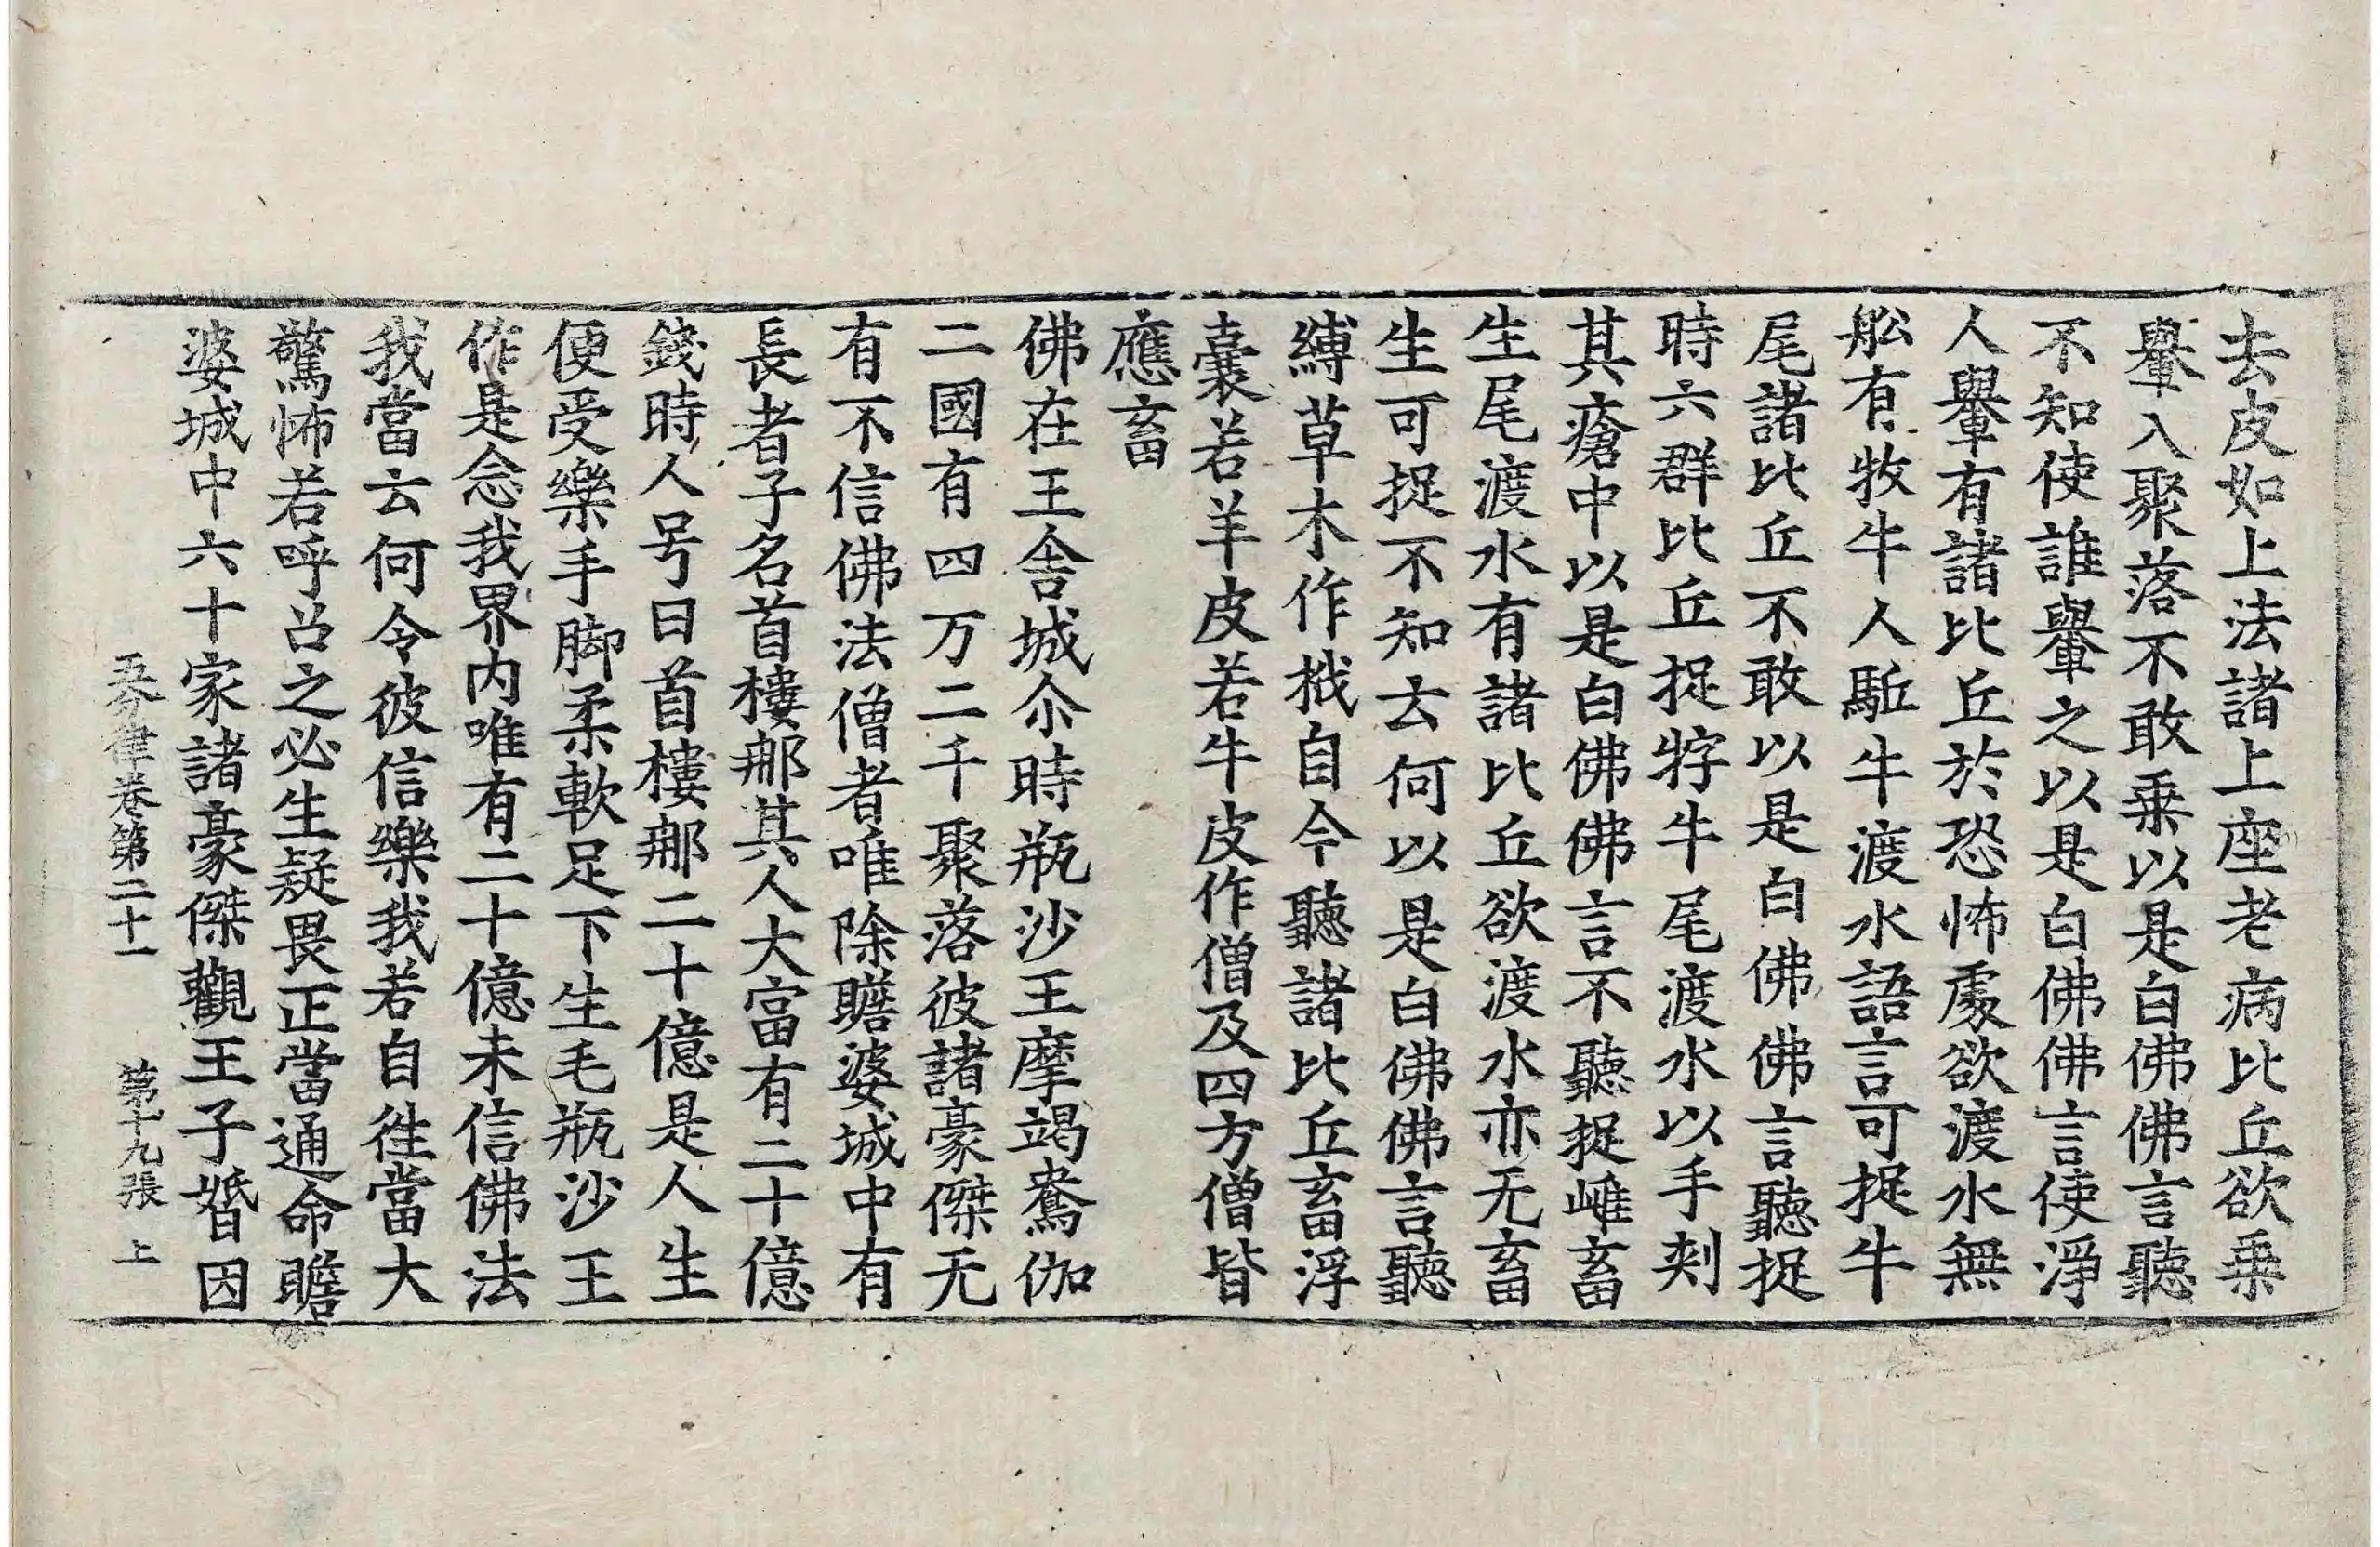 去皮如上法諸上座老病比丘欲乗
轝入聚落不敢乗以是白佛佛言聽
不知使誰轝之以是白佛佛言使淨
人轝有諸比丘於恐怖處欲渡水無
舩有牧牛人駈牛渡水語言可捉牛
尾諸比丘不敢以是白佛佛言聽捉
時六群比丘捉牸牛尾渡水以手刾
其瘡中以是白佛佛言不聽捉雌畜
生尾渡水有諸比丘欲渡水亦无畜
生可捉不知云何以是白佛佛言聽
縛草木作栰自今聽諸比丘畜浮
囊若羊皮若牛皮作僧及四方僧皆
應畜
佛在王舍城尒時瓶沙王摩竭鴦伽
二國有四万二千聚落彼諸豪傑无
有不信佛法僧者唯除瞻婆城中有
長者子名首樓那其人大富有二十億
錢時人号曰首樓那二十億是人生
便受樂手脚柔軟足下生毛瓶沙王
作是念我界内唯有二十億未信佛法
我當云何令彼信樂我若自徃當大
驚怖若呼召之必生疑畏正當通命瞻
婆城中六十家諸豪傑觀王子婚因
五分律卷第二十一 第十九張 上